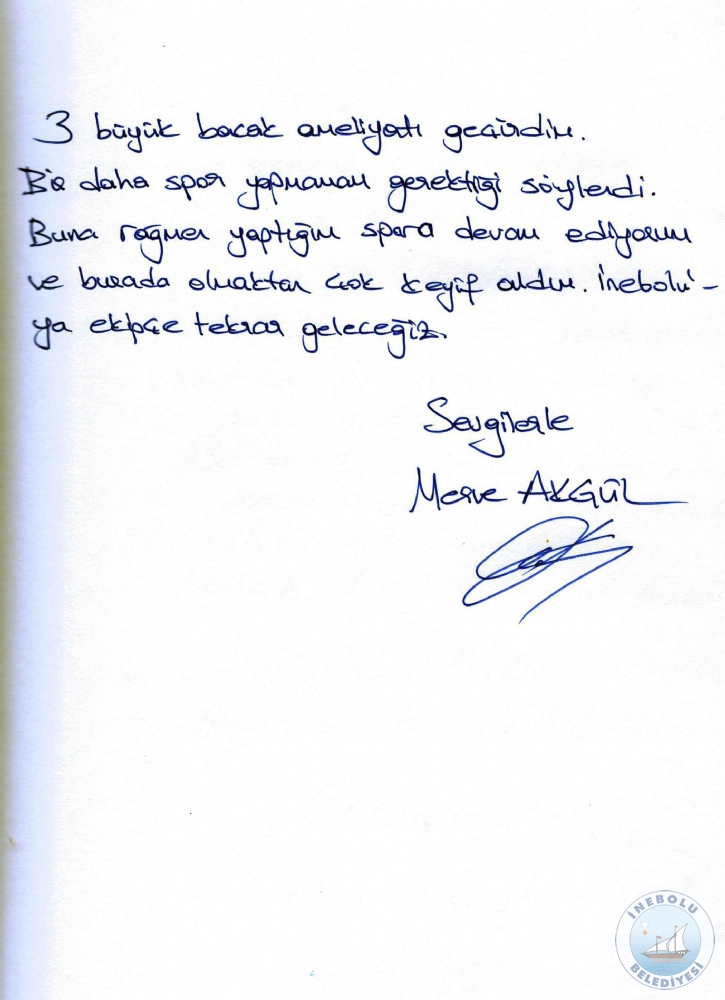 3 büyük bacak ameliyatı geçirdim.
Bir daha spor yapmamam gerektiği söylendi.
Buna rağmen yaptığım spora devam ediyorum
ve burada olmaktan çok keyif aldım. İnebolu'-
ya ekipçe tekrar geleceğiz.
Sevgilerle
Merve AKGÜL
İNEBOLU
BELEDİYESİ